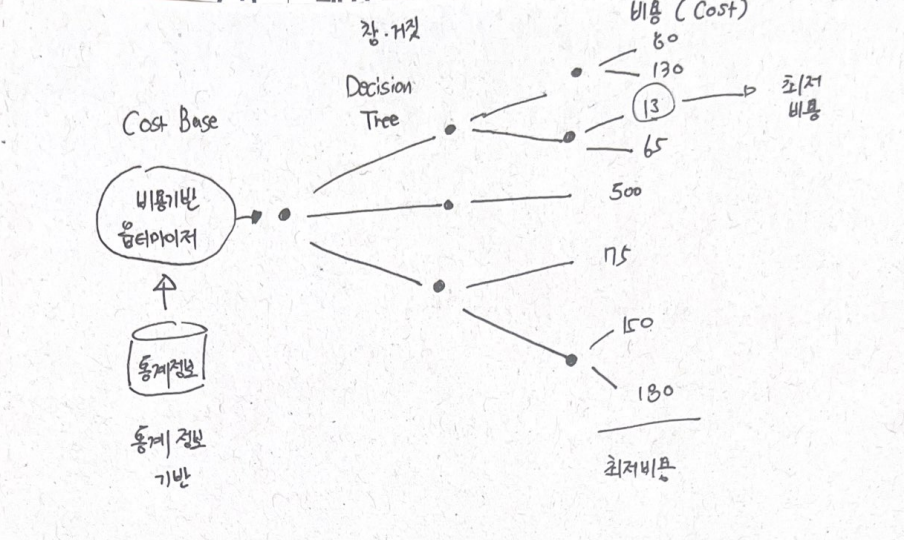 비용 (Cost)
참·거짓
Decision
Tree
Cost Base
80
130
13
65
최저
비용
비용기반
옵티마이저
500
75
150
180
통계정보
통계 정보
기반
최저비용